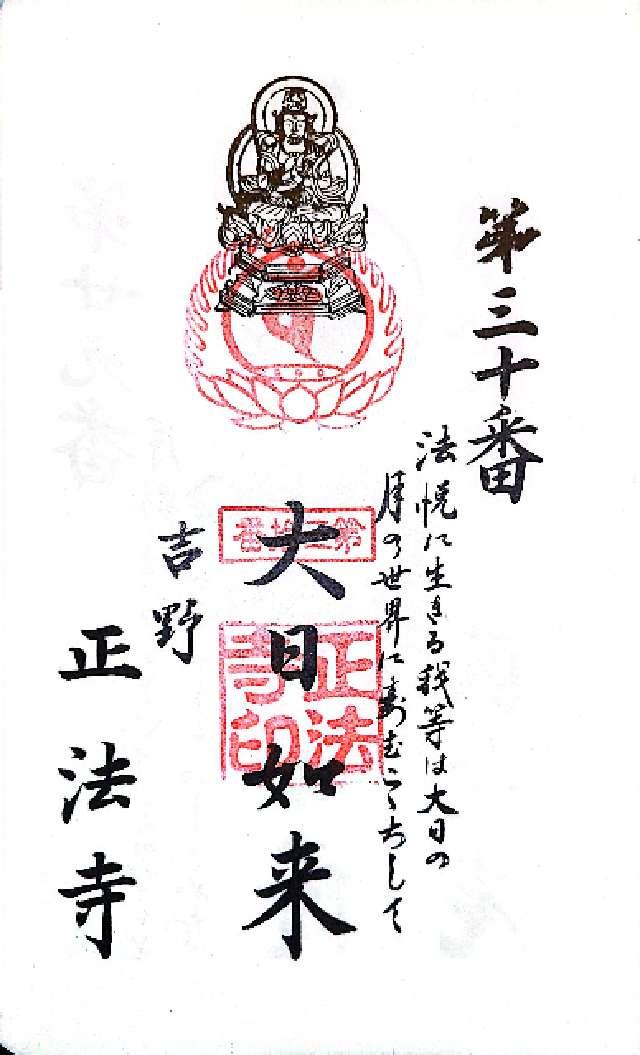 第三十番
法悦に生きる我等は大日の
月の世界に寿むこゝちして
大日如来
第三十番
正法寺印
吉野
正法寺